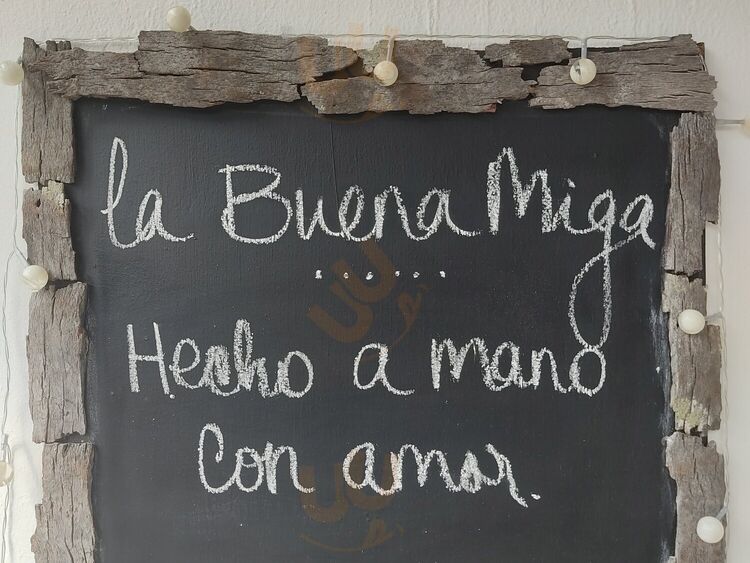 la Buena Miga
......
Hecho a mano
con amor.